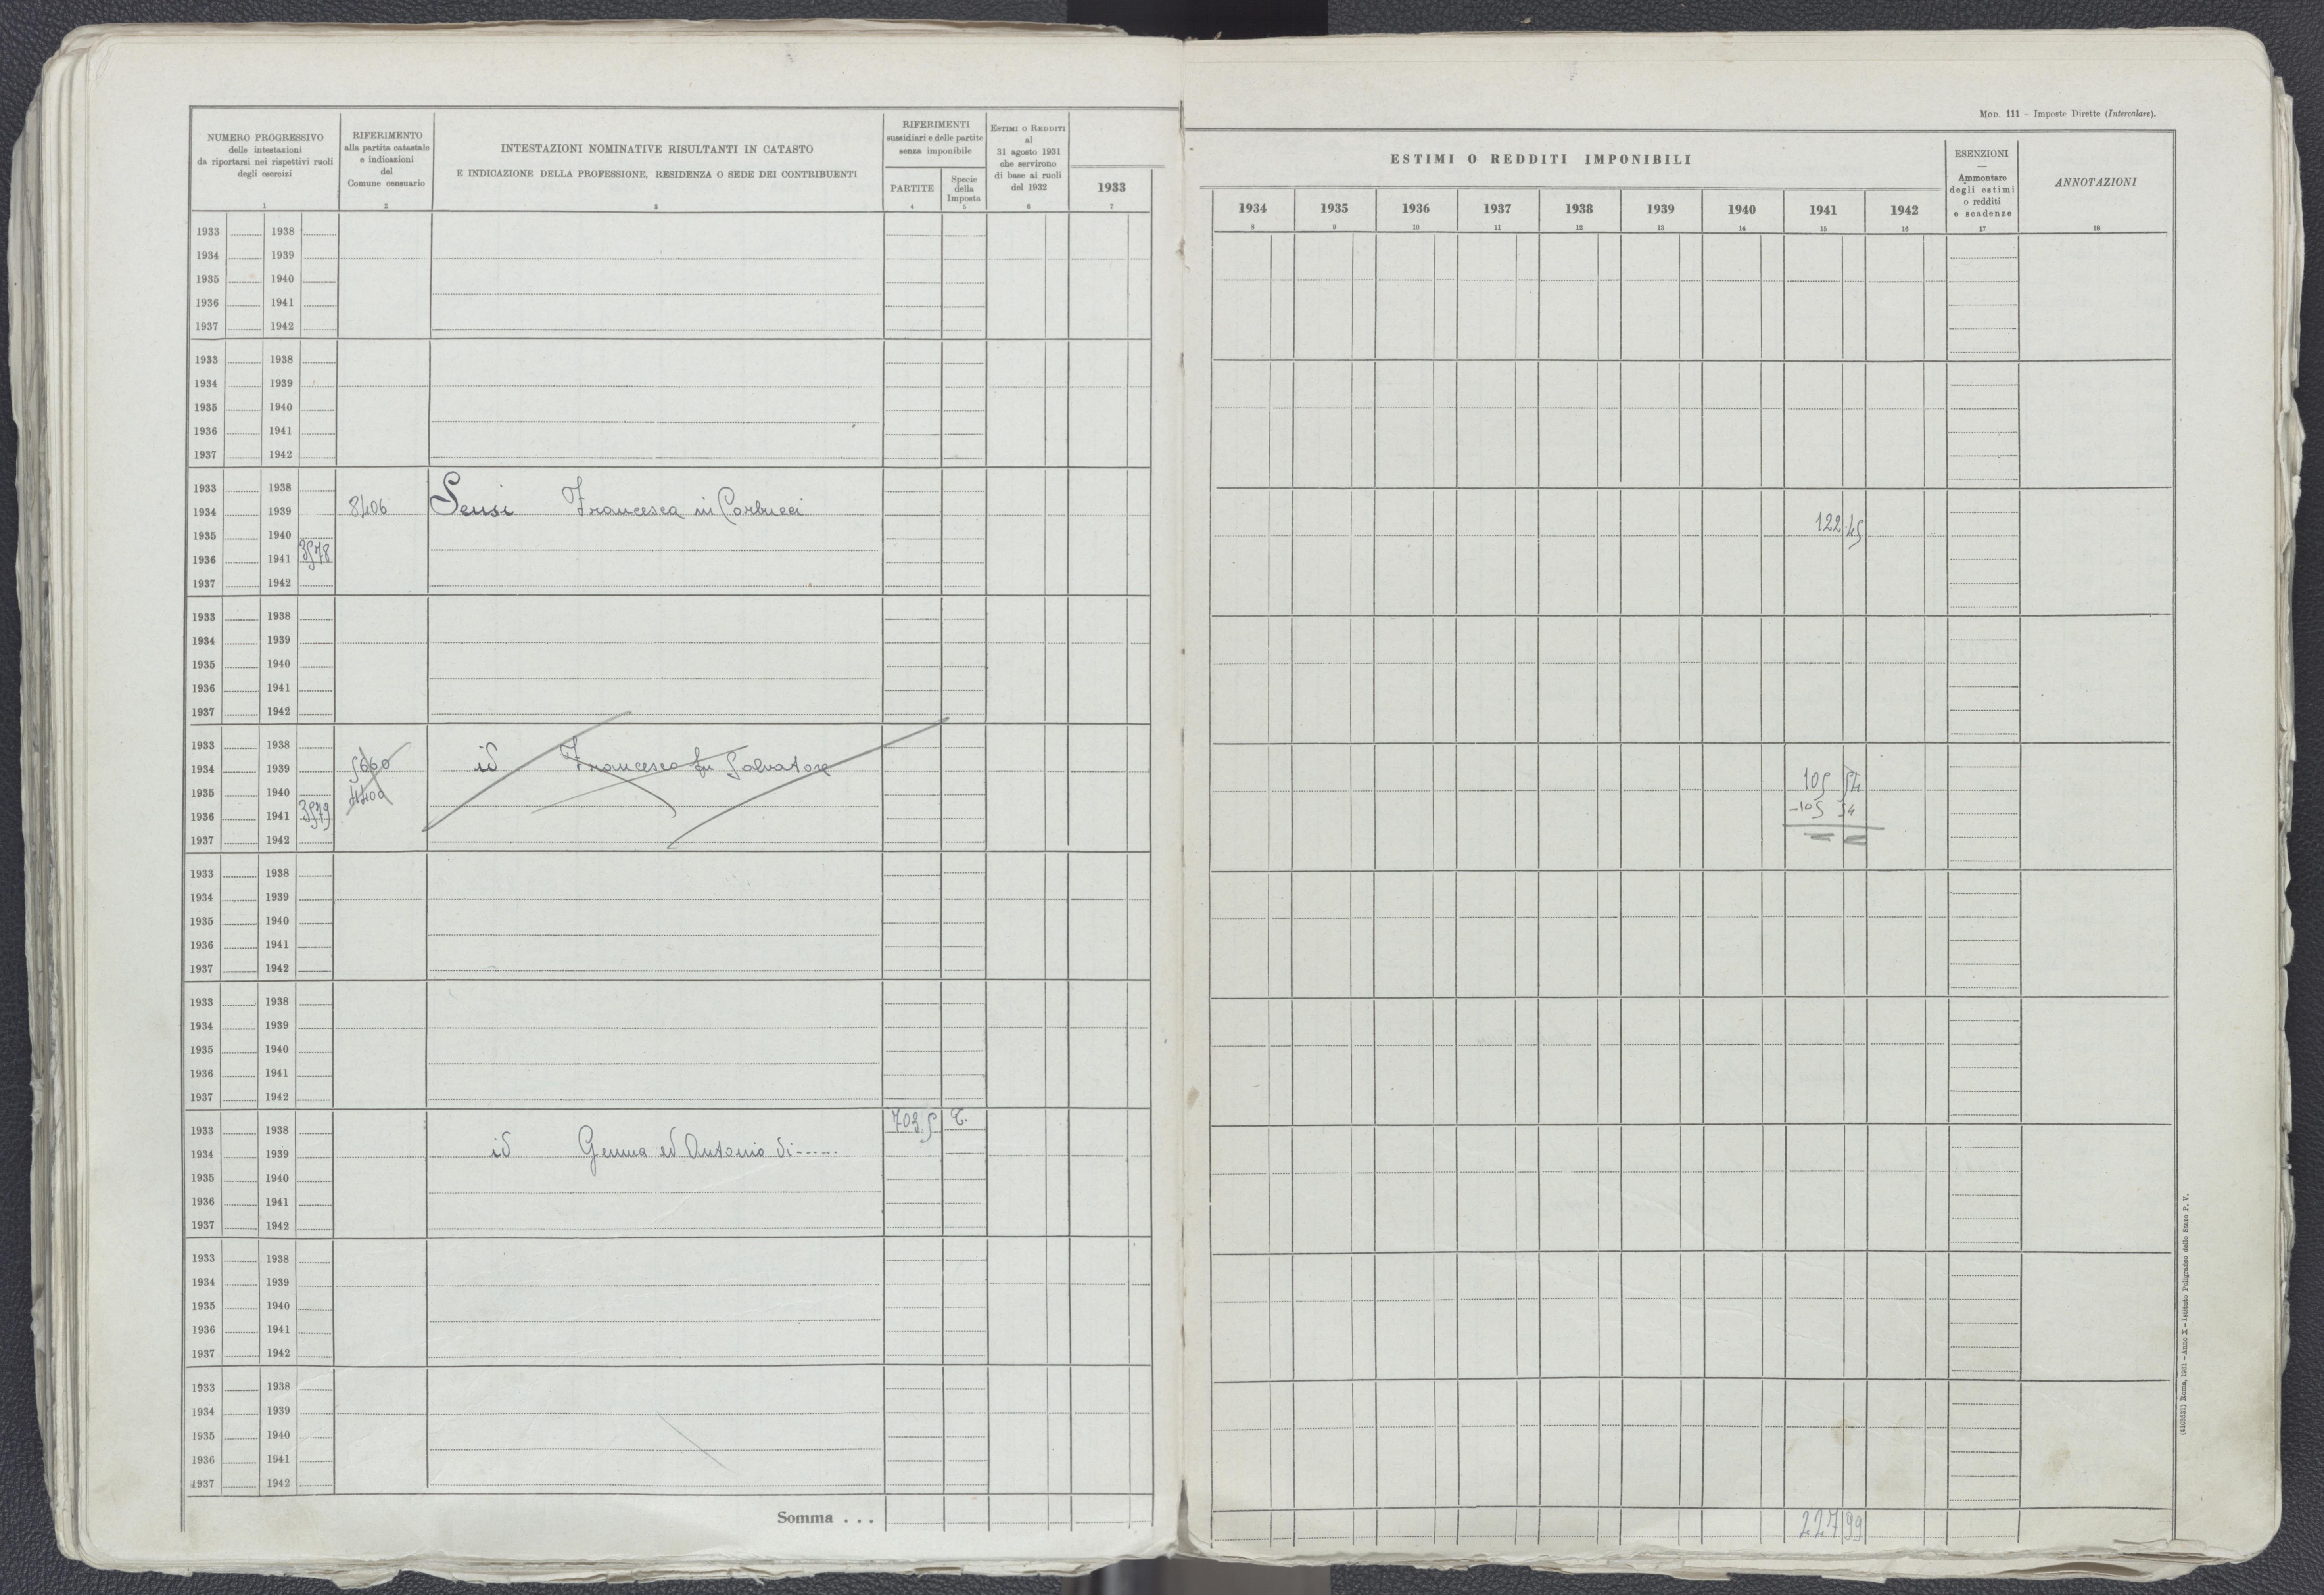 Mod. 111 – Imposte Dirette (Intercalare).
NUMERO PROGRESSIVO
delle intestazioni
da riportarsi nei rispettivi ruoli
degli esercizi
1
RIFERIMENTO
alla partita catastale
e indicazioni
del
Comune censuario
2
INTESTAZIONI NOMINATIVE RISULTANTI IN CATASTO
E INDICAZIONE DELLA PROFESSIONE, RESIDENZA O SEDE DEI CONTRIBUENTI
3
RIFERIMENTI
sussidiari e delle partite
senza imponibile
PARTITE
4
Specie
della
Imposta
5
Estimi o Redditi
al
31 agosto 1931
che servirono
di base ai ruoli
del 1932
6
1933
7
ESTIMI O REDDITI IMPONIBILI
1934 1935 1936 1937 1938 1939 1940 1941 1942
8 9 10 11 12 13 14 15 16
ESENZIONI
—
Ammontare
degli estimi
o redditi
e scadenze
17
ANNOTAZIONI
18
1933 1938
1934 1939
1935 1940
1936 1941
1937 1942
1933 1938
1934 1939
1935 1940
1936 1941
1937 1942
1933 1938
1934 1939 8406 Sensi Francesca in Corbucci 122 45
1935 1940
1936 1941 3578
1937 1942
1933 1938
1934 1939
1935 1940
1936 1941
1937 1942
1933 1938
1934 1939 5660 id Francesco fu Salvatore 105 54
1935 1940 4400
1936 1941 3579 -105 54
1937 1942
1933 1938
1934 1939
1935 1940
1936 1941
1937 1942
1933 1938
1934 1939
1935 1940
1936 1941
1937 1942
1933 1938 7035 T.
1934 1939 id Gemma ed Antonio di -----
1935 1940
1936 1941
1937 1942
1933 1938
1934 1939
1935 1940
1936 1941
1937 1942
1933 1938
1934 1939
1935 1940
1936 1941
1937 1942
Somma . . . 227 99
(4105551) Roma, 1931 – Anno X – Istituto Poligrafico dello Stato P. V.